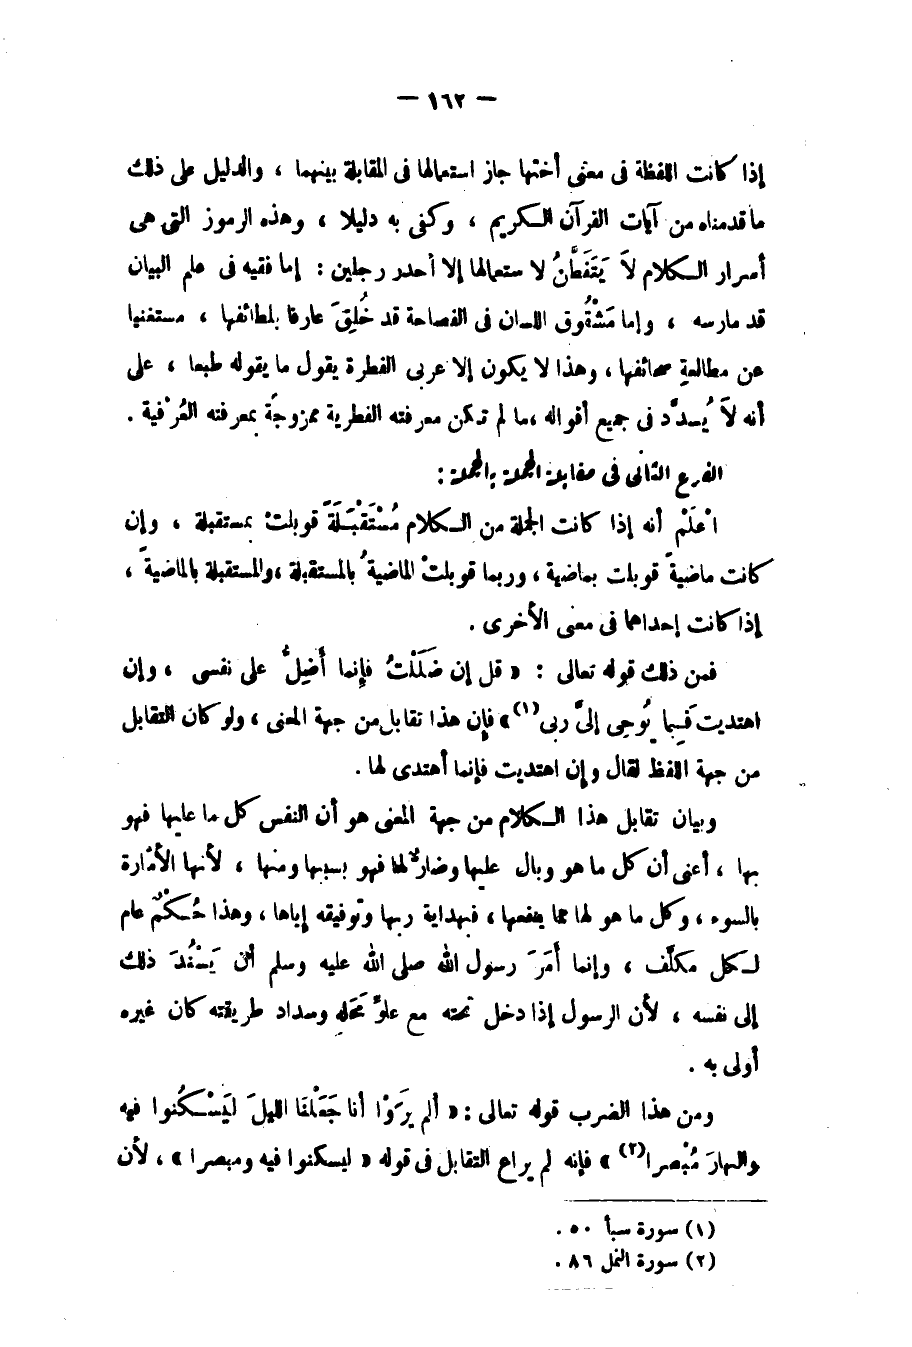 — ١٦٢ —
إذا كانت اللفظة فى معنى أختها جاز استعمالها فى المقابلة بينهما ، والدليل على ذلك
ما قدمناه من آيات القرآن الكريم ، وكفى به دليلا ، وهذه الرموز التى هى
أسرار الكلام لاَ يَتَفَطَّنُ لاستعمالها إلا أحد رجلين : إما فقيه فى علم البيان
قد مارسه ، وإما مَشْقُوق اللسان فى الفصاحة قد خُلِقَ عارفا بلطائفها ، مستغنيا
عن مطالعةِ صحائفها ، وهذا لا يكون إلا عربى الفطرة يقول ما يقوله طبعا ، على
أنه لاَ يُسدَّد فى جميع أقواله ، ما لم تكن معرفته الفطرية ممزوجةً بمعرفته العُرْفية .
الفرع الثانى فى مقابلة الجملة بالجملة :
اعْلَمْ أنه إذا كانت الجملة من الكلام مُسْتَقْبَلَةً قوبلتْ بمستقبلة ، وإن
كانت ماضيةً قوبلت بماضية ، وربما قوبلتْ الماضيةُ بالمستقبلة ، والمستقبلة بالماضيةً ،
إذا كانت إحداهما فى معنى الأخرى .
فمن ذلك قوله تعالى : « قل إن ضَلَلْتُ فإِنما أَضِلُّ على نفسى ، وإن
اهتديت فَبِما يُوحِى إلىَّ ربى(١) » فإن هذا تقابل من جهة المعنى ، ولو كان التقابل
من جهة اللفظ لقال وإن اهتديت فإنما أهتدى لها .
وبيان تقابل هذا الكلام من جهة المعنى هو أن النفس كل ما عليها فهو
بها ، أعنى أن كل ما هو وبال عليها وضارٌّ لها فهو بسببها ومنها ، لأنها الأمّارة
بالسوء ، وكل ما هو لها مما ينفعها ، فبهداية ربها وتوفيقه إياها ، وهذا حُكمٌ عام
لكل مكلَّف ، وإنما أَمَرَ رسول الله صلى الله عليه وسلم أن يَسْنُدَ ذلك
إلى نفسه ، لأن الرسول إذا دخل تحته مع علوِّ مَحَلِّه وسداد طريقته كان غيره
أولى به .
ومن هذا الضرب قوله تعالى : « ألم يَرَوْا أنا جَعَلْنَا الليلَ لِيَسْكُنوا فيه
والنهارَ مُبْصرا(٢) » فإنه لم يراع التقابل فى قوله « ليسكنوا فيه ومبصرا » ، لأن
(١) سورة سبأ ٥٠ .
(٢) سورة النمل ٨٦ .